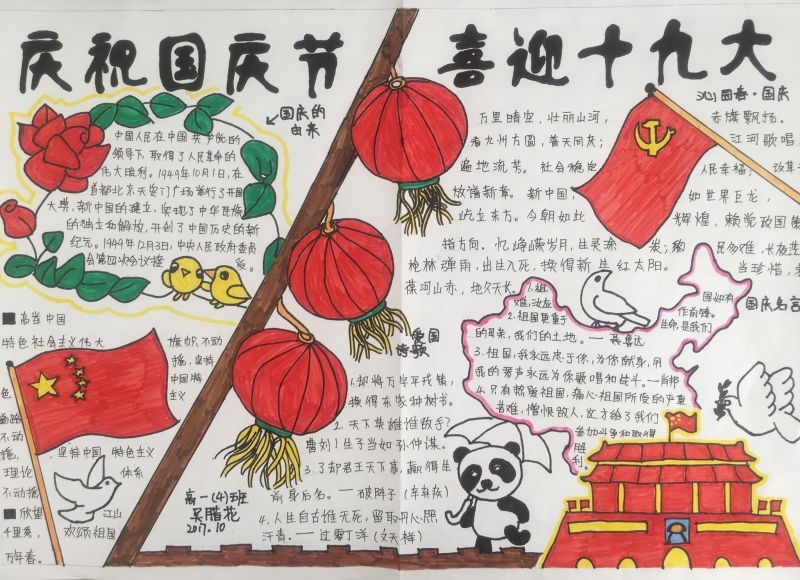 庆祝国庆节
喜迎十九大
国庆的
由来
中国人民在中国共产党的
领导下,取得了人民革命的
伟大胜利。1949年10月1日,在
首都北京天安门广场举行了开国
大典,新中国的建立,实现了中华民族
的独立和解放,开创了中国历史的新
纪元。1949年12月3日,中央人民政府委员
会第四次会议接受。
■高举中国
特色社会主义伟大
旗帜不动
摇,坚持
中国特
色
主义
道路
不动
摇,
坚持中国特色主义
理论
体系
不动摇
■欣望
江山
千里秀,
欢颂祖国
万年春。
沁园春·国庆
万里晴空,壮丽山河,
赤旗飘扬。
看九州方圆,普天同庆;
江河歌唱
遍地流芳。社会稳定
人民幸福;
放谱新章。新中国,
如世界巨龙,
屹立东方。今朝如此
辉煌,赖党政国策
指方向。忆峥嵘岁月,生灵涂炭;
民勿难,长夜茫
枪林弹雨,出生入死,换得新生红太阳。
当珍惜,
葆河山赤,地久天长。
爱国
诗歌
1.却将万字平戎策,
换得东家种树书。
2.天下英雄谁敌手?
曹刘!生子当如孙仲谋。
3.了却君王天下事,赢得生
前身后名。——破阵子(辛弃疾)
4.人生自古谁无死,留取丹心照
汗青。——过零丁洋(文天祥)
高一(4)班
吴腊花
2017.10
国庆名言
1.祖
国如有
难,汝应
作前锋。
2.祖国更重于
生命,是我们
的母亲,我们的土地。——聂鲁达
3.祖国,我永远忠于你,为你献身,用
我的琴声永远为你歌唱和战斗。——肖邦
4.只有热爱祖国,痛心祖国所受的严重
苦难,憎恨敌人,这才给了我们
参加斗争和取得
胜
利。